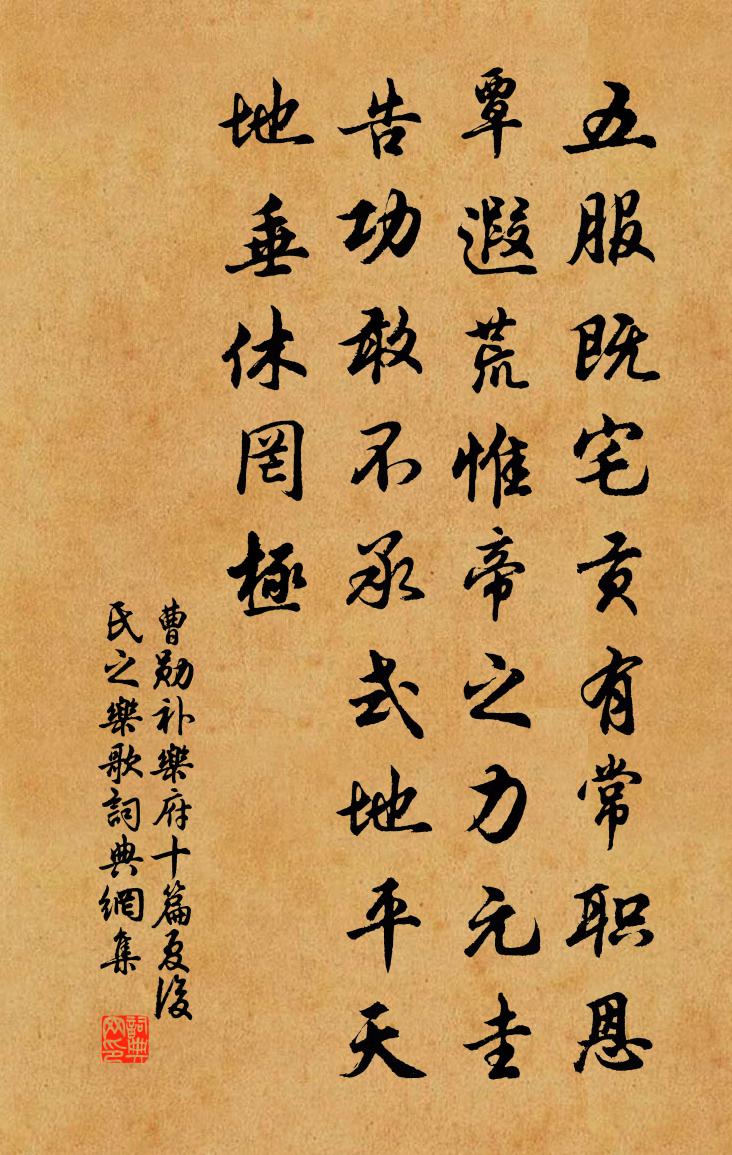 五服既宅贡有常职恩
覃遐荒惟帝之力元圭
告功敢不承式地平天
地垂休罔極
曹勋补樂府十篇夏後
氏之樂歌詞典網集
詞典网印